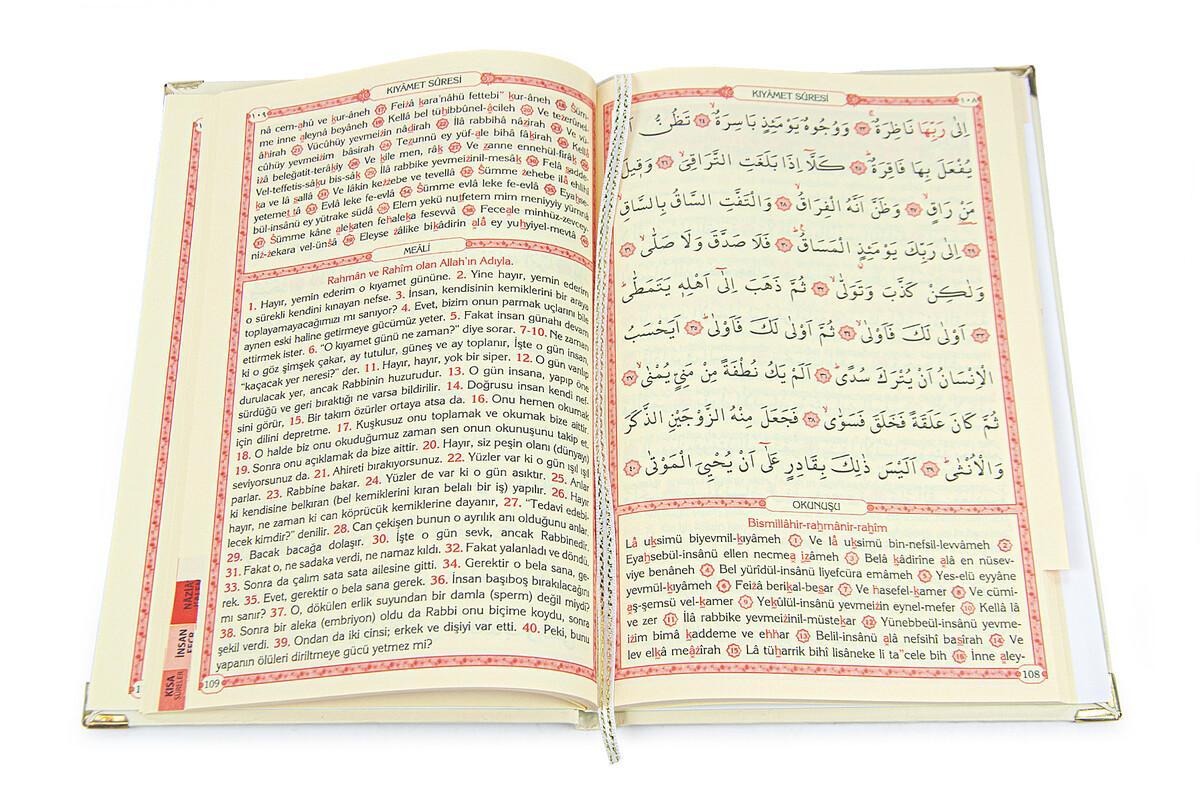 KIYÂMET SÛRESİ
١٠٨
اِلٰى رَبِّهَا نَاظِرَةٌۚ ﴿٢٣﴾ وَوُجُوهٌ يَوْمَئِذٍ بَاسِرَةٌۙ ﴿٢٤﴾ تَظُنُّ
يُفْعَلَ بِهَا فَاقِرَةٌۜ ﴿٢٥﴾ كَلَّٓا اِذَا بَلَغَتِ التَّرَاقِيَۙ ﴿٢٦﴾ وَقِيلَ
مَنْ رَاقٍۙ ﴿٢٧﴾ وَظَنَّ اَنَّهُ الْفِرَاقُۙ ﴿٢٨﴾ وَالْتَفَّتِ السَّاقُ بِالسَّاقِۙ
﴿٢٩﴾ اِلٰى رَبِّكَ يَوْمَئِذٍ الْمَسَاقُۜ ﴿٣٠﴾ فَلَا صَدَّقَ وَلَا صَلّٰىۙ ﴿٣١﴾
وَلٰكِنْ كَذَّبَ وَتَوَلّٰىۙ ﴿٣٢﴾ ثُمَّ ذَهَبَ اِلٰٓى اَهْلِهٖ يَتَمَطّٰىۜ
﴿٣٣﴾ اَوْلٰى لَكَ فَاَوْلٰىۙ ﴿٣٤﴾ ثُمَّ اَوْلٰى لَكَ فَاَوْلٰىۜ ﴿٣٥﴾ اَيَحْسَبُ
الْاِنْسَانُ اَنْ يُتْرَكَ سُدًىۜ ﴿٣٦﴾ اَلَمْ يَكُ نُطْفَةً مِنْ مَنِيٍّ يُمْنٰىۙ ﴿٣٧﴾
ثُمَّ كَانَ عَلَقَةً فَخَلَقَ فَسَوّٰىۙ ﴿٣٨﴾ فَجَعَلَ مِنْهُ الزَّوْجَيْنِ الذَّكَرَ
وَالْاُنْثٰىۜ ﴿٣٩﴾ اَلَيْسَ ذٰلِكَ بِقَادِرٍ عَلٰٓى اَنْ يُحْيِيَ الْمَوْتٰى ﴿٤٠﴾
OKUNUŞU
Bismillâhir-rahmânir-rahîm
Lâ uksimü biyevmil-kıyâmeh 1 Ve lâ uksimü bin-nefsil-levvâmeh 2
Eyahsebül-insânü ellen necmea izâmeh 3 Belâ kâdirîne alâ en nüsev-
viye benâneh 4 Bel yürîdül-insânü liyefcüra emâmeh 5 Yes-elü eyyâne
yevmül-kıyâmeh 6 Feizâ berikal-besar 7 Ve hasefel-kamer 8 Ve cümi-
aş-şemsü vel-kamer 9 Yekûlül-insânü yevmeizin eynel-mefer 10 Kellâ lâ
ve zer 11 İlâ rabbike yevmeizinil-müstekar 12 Yünebbeül-insânü yevme-
izim bimâ kaddeme ve ehhar 13 Belil-insânü alâ nefsihî basîrah 14 Ve
lev elkâ meâzîrah 15 Lâ tüharrik bihî lisâneke li ta"cele bih 16 İnne aley-
108
KIYÂMET SÛRESİ
١٠٩
nâ cem-ahû ve kur-âneh 17 Feizâ kara'nâhü fettebi" kur-âneh 18 Süm-
me inne aleynâ beyâneh 19 Kellâ bel tühibbûnel-âcileh 20 Ve tezerûnel-
âhirah 21 Vücûhüy yevmeizin nâdirah 22 İlâ rabbihâ nâzirah 23 Ve vü-
cûhüy yevmeizim bâsirah 24 Tezunnü ey yüf-ale bihâ fâkirah 25 Kellâ
izâ beleğatit-terâkiy 26 Ve kîle men, râk 27 Ve zanne ennehül-firâk 28
Vel-teffetis-sâku bis-sâk 29 İlâ rabbike yevmeizinil-mesâk 30 Felâ sadde-
ka ve lâ sallâ 31 Ve lâkin kezzebe ve tevellâ 32 Sümme zehebe ilâ ehlihî
yetemettâ 33 Evlâ leke fe-evlâ 34 Sümme evlâ leke fe-evlâ 35 Eyahse-
bül-insânü ey yütrake südâ 36 Elem yekü nutfetem mim meniyyiy yümnâ
37 Sümme kâne alekaten fehaleka fesevvâ 38 Feceale minhüz-zevcey-
niz-zekara vel-ünsâ 39 Eleyse zâlike bikâdirin alâ ey yuhyiyel-mevtâ 40
MEÂLİ
Rahmân ve Rahîm olan Allah'ın Adıyla.
1. Hayır, yemin ederim o kıyamet gününe. 2. Yine hayır, yemin ederim
o sürekli kendini kınayan nefse. 3. İnsan, kendisinin kemiklerini bir araya
toplayamayacağımızı mı sanıyor? 4. Evet, bizim onun parmak uçlarını bile
aynen eski haline getirmeye gücümüz yeter. 5. Fakat insan günahı devam
ettirmek ister. 6. "O kıyamet günü ne zaman?" diye sorar. 7-10. Ne zaman
ki o göz şimşek çakar, ay tutulur, güneş ve ay toplanır, İşte o gün insan,
"kaçacak yer neresi?" der. 11. Hayır, hayır, yok bir siper. 12. O gün varılıp
durulacak yer, ancak Rabbinin huzurudur. 13. O gün insana, yapıp öne
sürdüğü ve geri bıraktığı ne varsa bildirilir. 14. Doğrusu insan kendi nef-
sini görür, 15. Bir takım özürler ortaya atsa da. 16. Onu hemen okumak
için dilini depretme. 17. Kuşkusuz onu toplamak ve okumak bize aittir.
18. O halde biz onu okuduğumuz zaman sen onun okunuşunu takip et.
19. Sonra onu açıklamak da bize aittir. 20. Hayır, siz peşin olanı (dünyayı)
seviyorsunuz da. 21. Ahireti bırakıyorsunuz. 22. Yüzler var ki o gün ışıl ışıl
parlar. 23. Rabbine bakar. 24. Yüzler de var ki o gün asıktır. 25. Anlar
ki kendisine belkıran (bel kemiklerini kıran belalı bir iş) yapılır. 26. Hayır
hayır, ne zaman ki can köprücük kemiklerine dayanır, 27. "Tedavi edebi-
lecek kimdir?" denilir. 28. Can çekişen bunun o ayrılık anı olduğunu anlar.
29. Bacak bacağa dolaşır. 30. İşte o gün sevk, ancak Rabbinedir.
31. Fakat o, ne sadaka verdi, ne namaz kıldı. 32. Fakat yalanladı ve döndü.
33. Sonra da çalım sata sata ailesine gitti. 34. Gerektir o bela sana, ge-
rek. 35. Evet, gerektir o bela sana gerek. 36. İnsan başıboş bırakılacağını
mı sanır? 37. O, dökülen erlik suyundan bir damla (sperm) değil miydi?
38. Sonra bir aleka (embriyon) oldu da Rabbi onu biçime koydu, sonra
şekil verdi. 39. Ondan da iki cinsi; erkek ve dişiyi var etti. 40. Peki, bunu
yapanın ölüleri diriltmeye gücü yetmez mi?
109
NÂZİÂT
İNSAN
FECR
KISA
SÛRELER